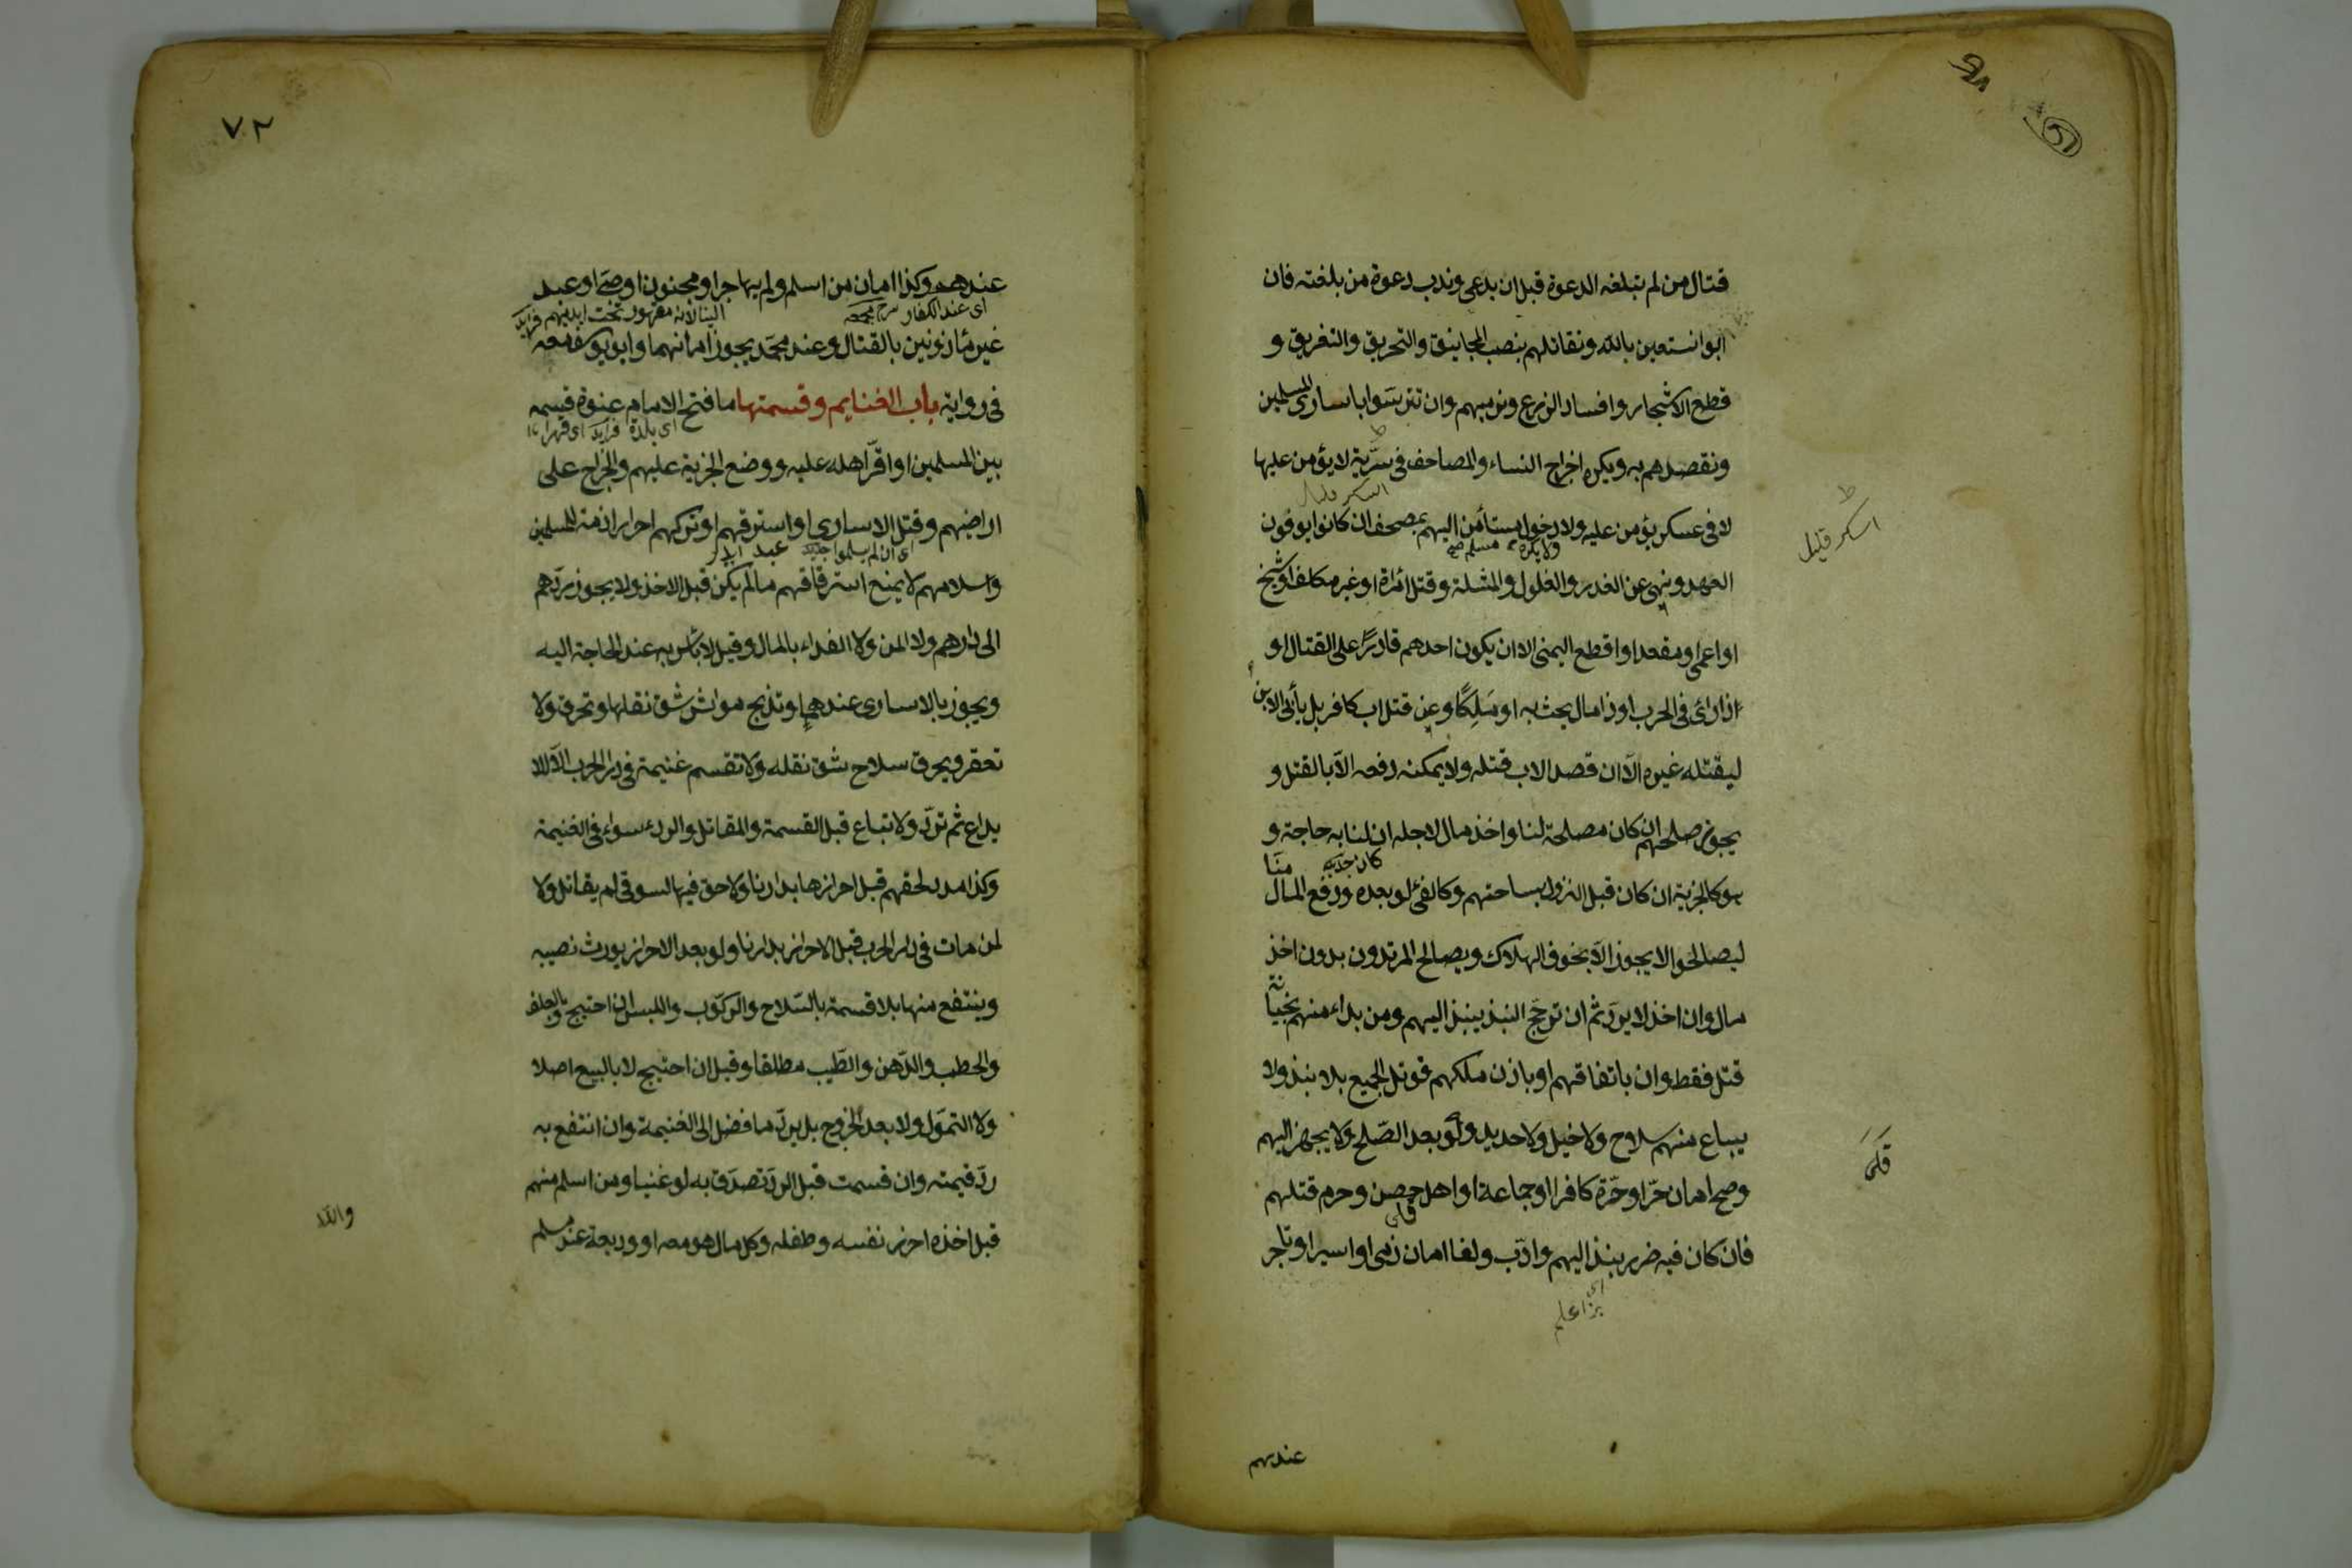 قتال من لم تبلغه الدعوة قبل ان يدعى وندب دعوة من بلغته فان
ابوا نستعين بالله ونقاتلهم بنصب المجانيق والتحريق والتغريق و
قطع الاشجار وافساد الزرع ونرميهم وان تترسوا باسارى المسلمين
ونقصدهم به ويكره اخراج النساء والمصاحف فى سرّية لا يؤمن عليها
لا فى عسكر يؤمن عليه ولا دخول مستأمن اليهم بمصحف ان كانوا يوفون
ولا يكره مسلم صح
اسكر قليل
العهد ونهى عن الغدر والغلول والمثلة وقتل امرأة او غير مكلف او شيخ
او اعمى او مقعد او اقطع اليمنى الا ان يكون احدهم قادرًا على القتال او
اذا رأى فى الحرب او ذا مال يحث به او مَلِكًا وعن قتل اب كافر بل يأبى الابن
ليقتله غيره الّا ان قصد الاب قتله ولا يمكنه دفعه الّا بالقتل و
يجوز صلحهم ان كان مصلحة لنا واخذ مال لاجله ان لنا به حاجة و
هو كالجزية ان كان قبل النزول بساحتهم وكالفئ لو بعده ودفع المال
منّا
ليصالحوا لا يجوز الّا بخوف الهلاك ويصالح المرتدون بدون اخذ
مال وان اخذ لا يردّ ثم ان ترجّح النبذ ينبذ اليهم ومن بداء منهم بخيانة
قتل فقط وان باتفاقهم او باذن ملكهم قوتل الجميع بلا نبذ ولا
يباع منهم سلاح ولا خيل ولا حديد ولو بعد الصّلح ولا يجهز اليهم
وصح امان حرّ او حرّة كافرا او جماعة او اهل حصن وحرم قتلهم
فان كان فيه ضرر ينبذ اليهم وادّب ولغا امان ذمى او اسير او تاجر
عندهم
٧٢
عندهم وكذا امان من اسلم ولم يهاجر او مجنون او صبى او عبد
اى عند الكفار
غير مأذونين بالقتال وعند محمّد يجوز امانهما وابو يوسف معه
فى رواية باب الغنايم وقسمتها ما فتح الامام عنوة قسمه
اى بلدة فرايد اى قهرا
بين المسلمين او اقرّ اهله عليه ووضع الجزية عليهم والخراج على
اراضيهم وقتل الاسارى او استرقهم او تركهم احرارا ذمة للمسلمين
اى ان لم يسلموا
واسلامهم لا يمنع استرقاقهم ما لم يكن قبل الاخذ ولا يجوز ردّهم
الى دارهم ولا المن ولا الفداء بالمال وقيل لا بأس به عند الحاجة اليه
ويجوز بالاسارى عندهما وتذبح مواش شق نقلها وتحرق ولا
تعقر ويحرق سلاح شق نقله ولا تقسم غنيمة فى دار الحرب الّا للا
يداع ثم تردّ ولا تباع قبل القسمة والمقاتل والردء سواء فى الغنيمة
وكذا مدد لحقهم قبل احرازها بدارنا ولا حق فيها لسوقى لم يقاتل ولا
لمن مات فى دار الحرب قبل الاحراز بدارنا ولو بعد الاحراز يورث نصيبه
وينتفع منها بلا قسمة بالسّلاح والركوب واللبس ان احتيج وبالعلف
والحطب والدّهن والطّيب مطلقا وقيل ان احتيج لا بالبيع اصلا
ولا التموّل ولا بعد الخروج بل يردّ ما فضل الى الغنيمة وان انتفع به
ردّ قيمته وان قسمت قبل الردّ تصدّق به لو غنيا ومن اسلم منهم
قبل اخذه احرز نفسه وطفله وكل مال هو معه او وديعة عند مسلم